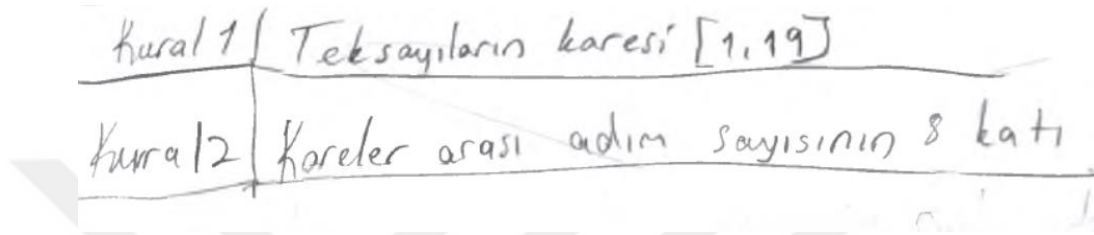 Kural 1 Teksayıların karesi [1,19]
Kural 2 Kareler arası adım sayısının 8 katı